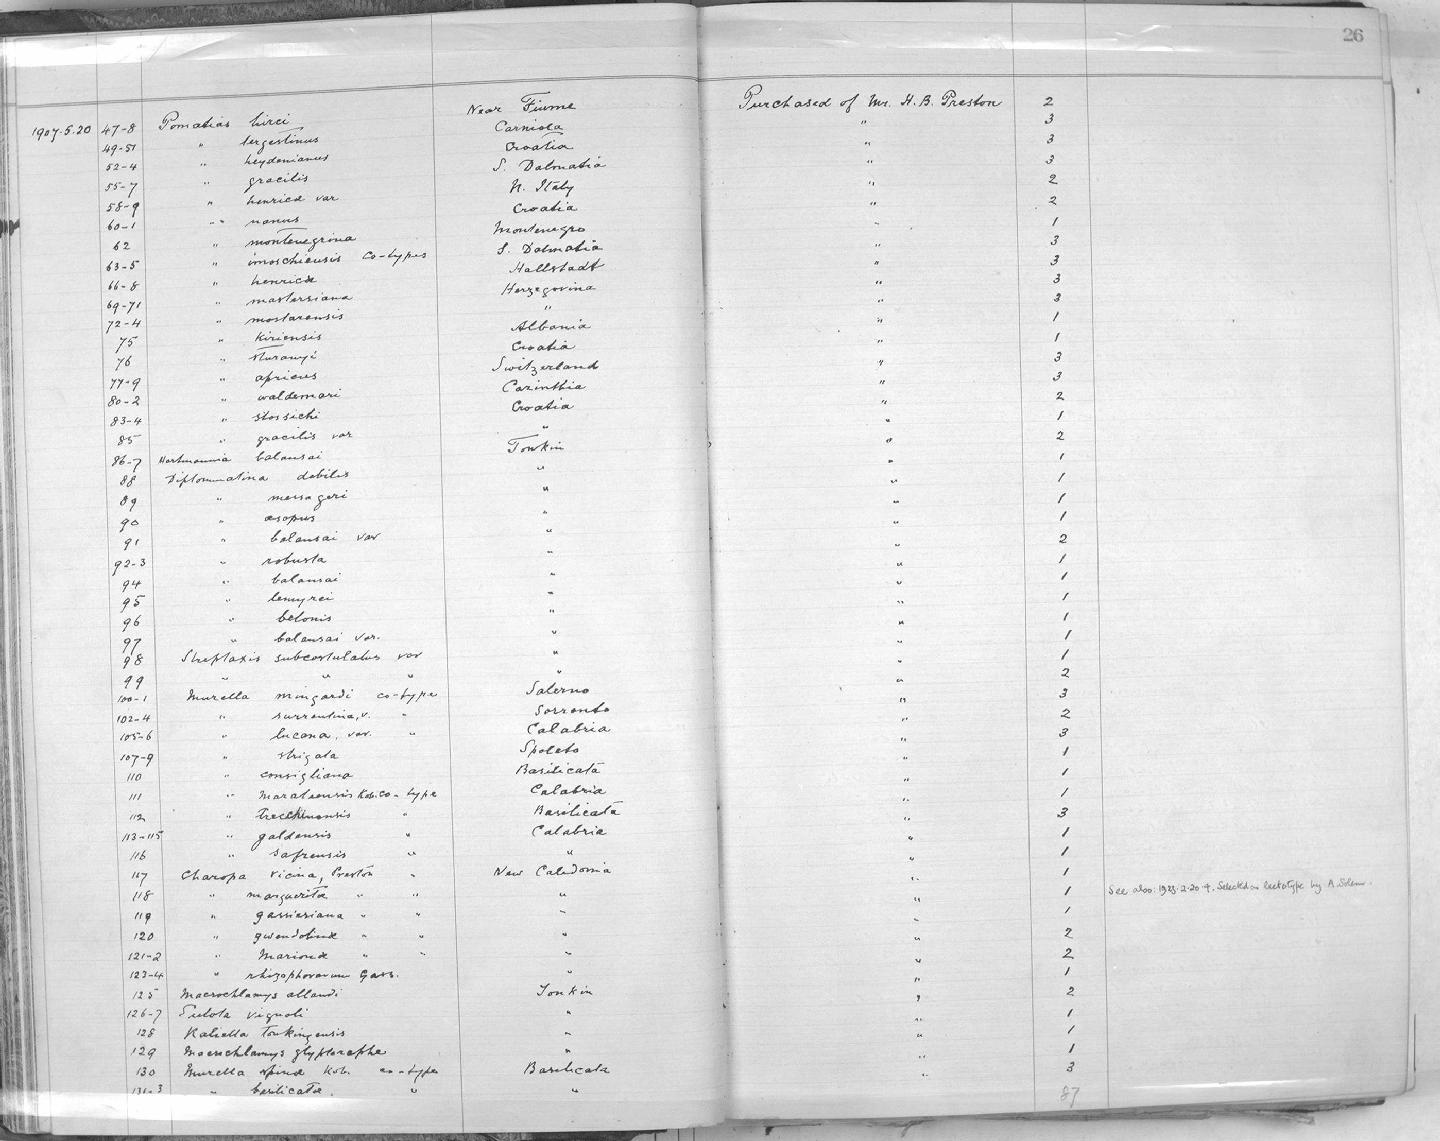 26
1907.5.20 47-8 Pomatias hirci Near Fiume Purchased of Mr. H. B. Preston 2
49-51 " tergestinus Carniola " 3
52-4 " heydenianus Croatia " 3
55-7 " gracilis S. Dalmatia " 3
58-9 " henricæ var N. Italy " 2
60-1 " " nanus Croatia " 2
62 " montenegrina Montenegro " 1
63-5 " imoschiensis co-types S. Dalmatia " 3
66-8 " henricæ Hallstadt " 3
69-71 " martensiana Herzegovina " 3
72-4 " mostarensis " " 3
75 " kiriensis Albania " 1
76 " sturanyi Croatia " 1
77-9 " apricus Switzerland " 3
80-2 " waldemari Carinthia " 3
83-4 " stossichi Croatia " 2
85 " gracilis var " " 1
86-7 Hartmannia balansai Tonkin " 2
88 Diplommatina debilis " " 1
89 " messageri " " 1
90 " æsopus " " 1
91 " balansai var " " 1
92-3 " robusta " " 2
94 " balansai " " 1
95 " lemyrei " " 1
96 " belonis " " 1
97 " balansai var. " " 1
98 Streptaxis subcostulatus var " " 1
99 " " " " " 1
100-1 Murella mingardi co-type Salerno " 2
102-4 " surrentina, v. " Sorrento " 3
105-6 " lucana, var. " Calabria " 2
107-9 " strigata Spoleto " 3
110 " consigliana Basilicata " 1
111 " marateensis Kob. co-type Calabria " 1
112 " trecchinensis " Basilicata " 1
113-115 " galdensis " Calabria " 3
116 " saprensis " " " 1
117 Charopa vicina, Preston " New Caledonia " 1
118 " margueritæ " " " " 1 See also: 1923.2.20.4. Selected as lectotype by A. Solem.
119 " gassiesiana " " " " 1
120 " gwendolinæ " " " " 1
121-2 " marionæ " " " " 2
123-4 " rhizophorarum Gass. " " 2
125 Macrochlamys allaudi Tonkin " 1
126-7 Sitala vignoli " " 2
128 Kaliella tonkingensis " " 1
129 Macrochlamys glyptoraphe " " 1
130 Murella spinæ Kob. co-type Basilicata " 1
131-3 " basilicatæ. " " " 3
87